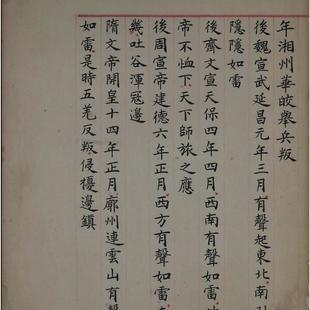 年湘州華皎舉兵叛
後魏宣武延昌元年三月有聲起東北南引
隱隱如雷
後齊文宣天保四年四月西南有聲如雷
帝不恤下天下師旅之應
後周宣帝建德六年正月西方有聲如雷
幾吐谷渾冦邊
隋文帝開皇十四年正月廓州連雲山有聲
如雷是時五羌反叛侵擾邊鎮